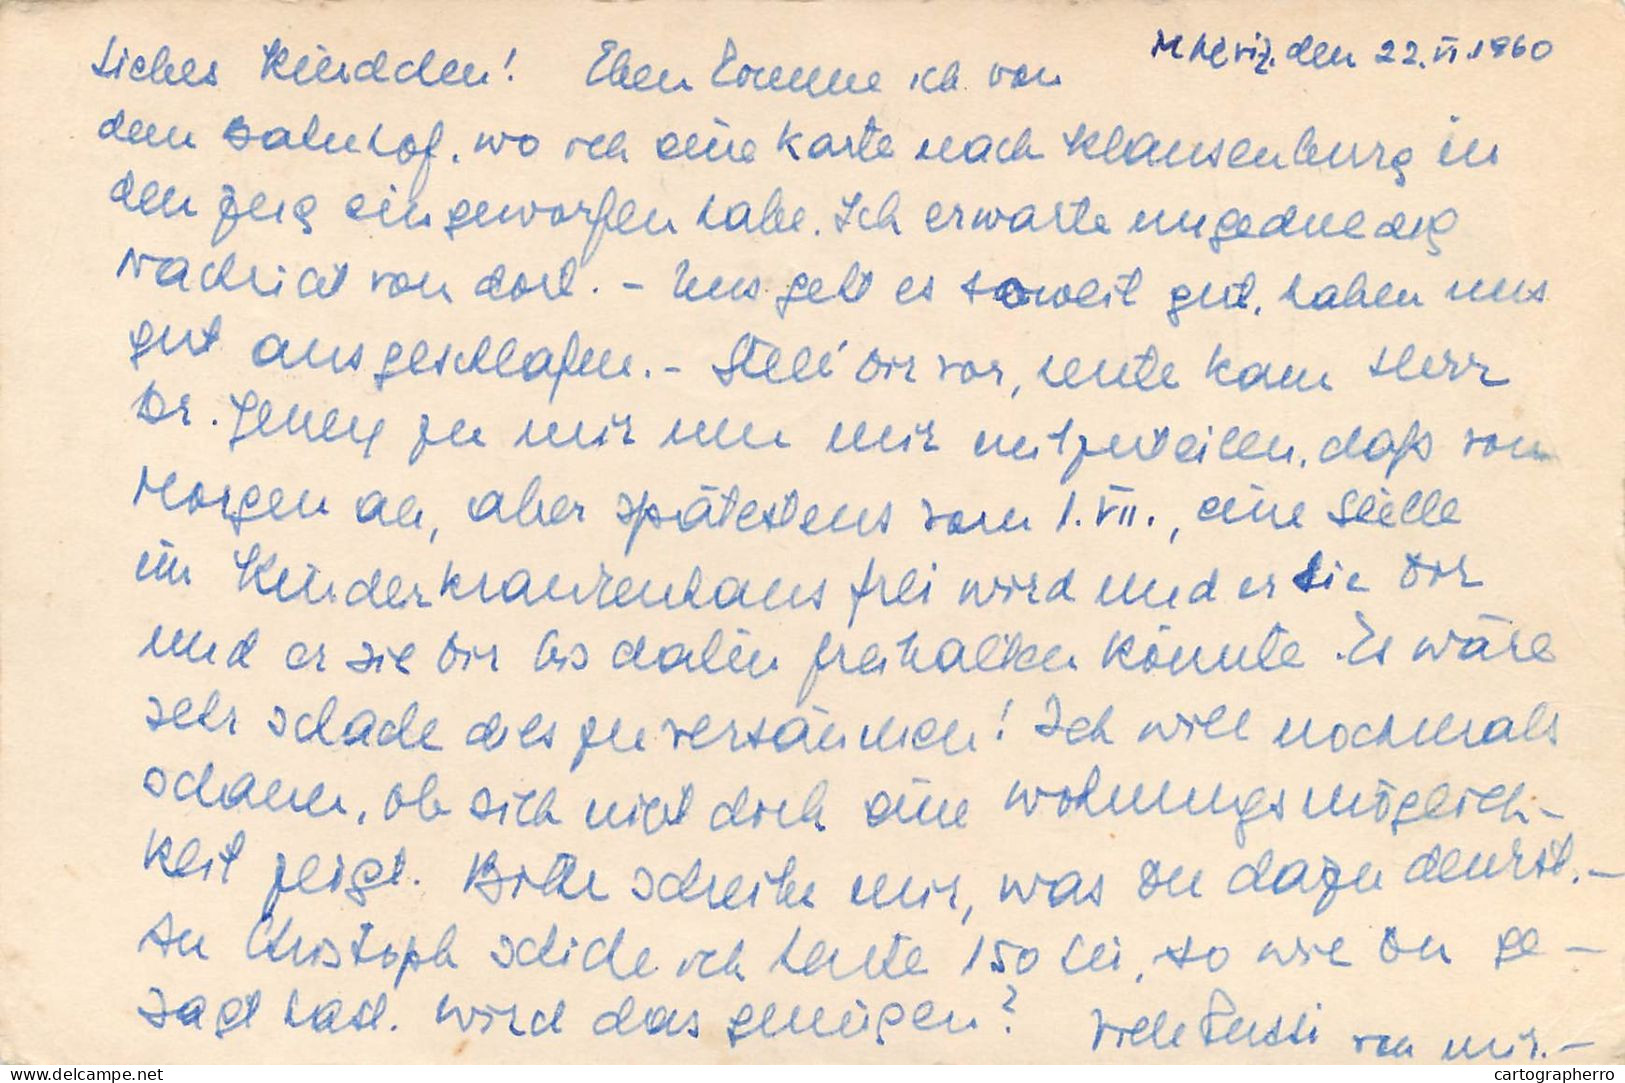 den 22.VI.1960
Liebes Kindchen! Eben komme ich von
dem Bahnhof, wo ich eine Karte nach Klausenburg in
den Zug eingeworfen habe. Ich erwarte ungeduldig
Nachricht von dort. – Uns geht es soweit gut, haben uns
gut ausgeschlafen. – Stell' Dir vor, heute kam Herr
Dr. zu mir um mir mitzuteilen, daß von
Morgen an, aber spätestens vom 1.VII., eine Stelle
im Kinderkrankenhaus frei wird und er sie Dir
und er sie Dir bis dahin freihalten könnte. Es wäre
sehr schade dies zu versäumen! Ich will nochmals
schauen, ob sich nicht doch eine Wohnungsmöglich-
keit zeigt. Bitte schreibe mir, was Du dazu denkst. –
An Christoph schicke ich heute 150 Lei, so wie Du ge-
sagt hast. Wird das genügen? Viele Pussi von mir. –
www.delcampe.net
cartographerro